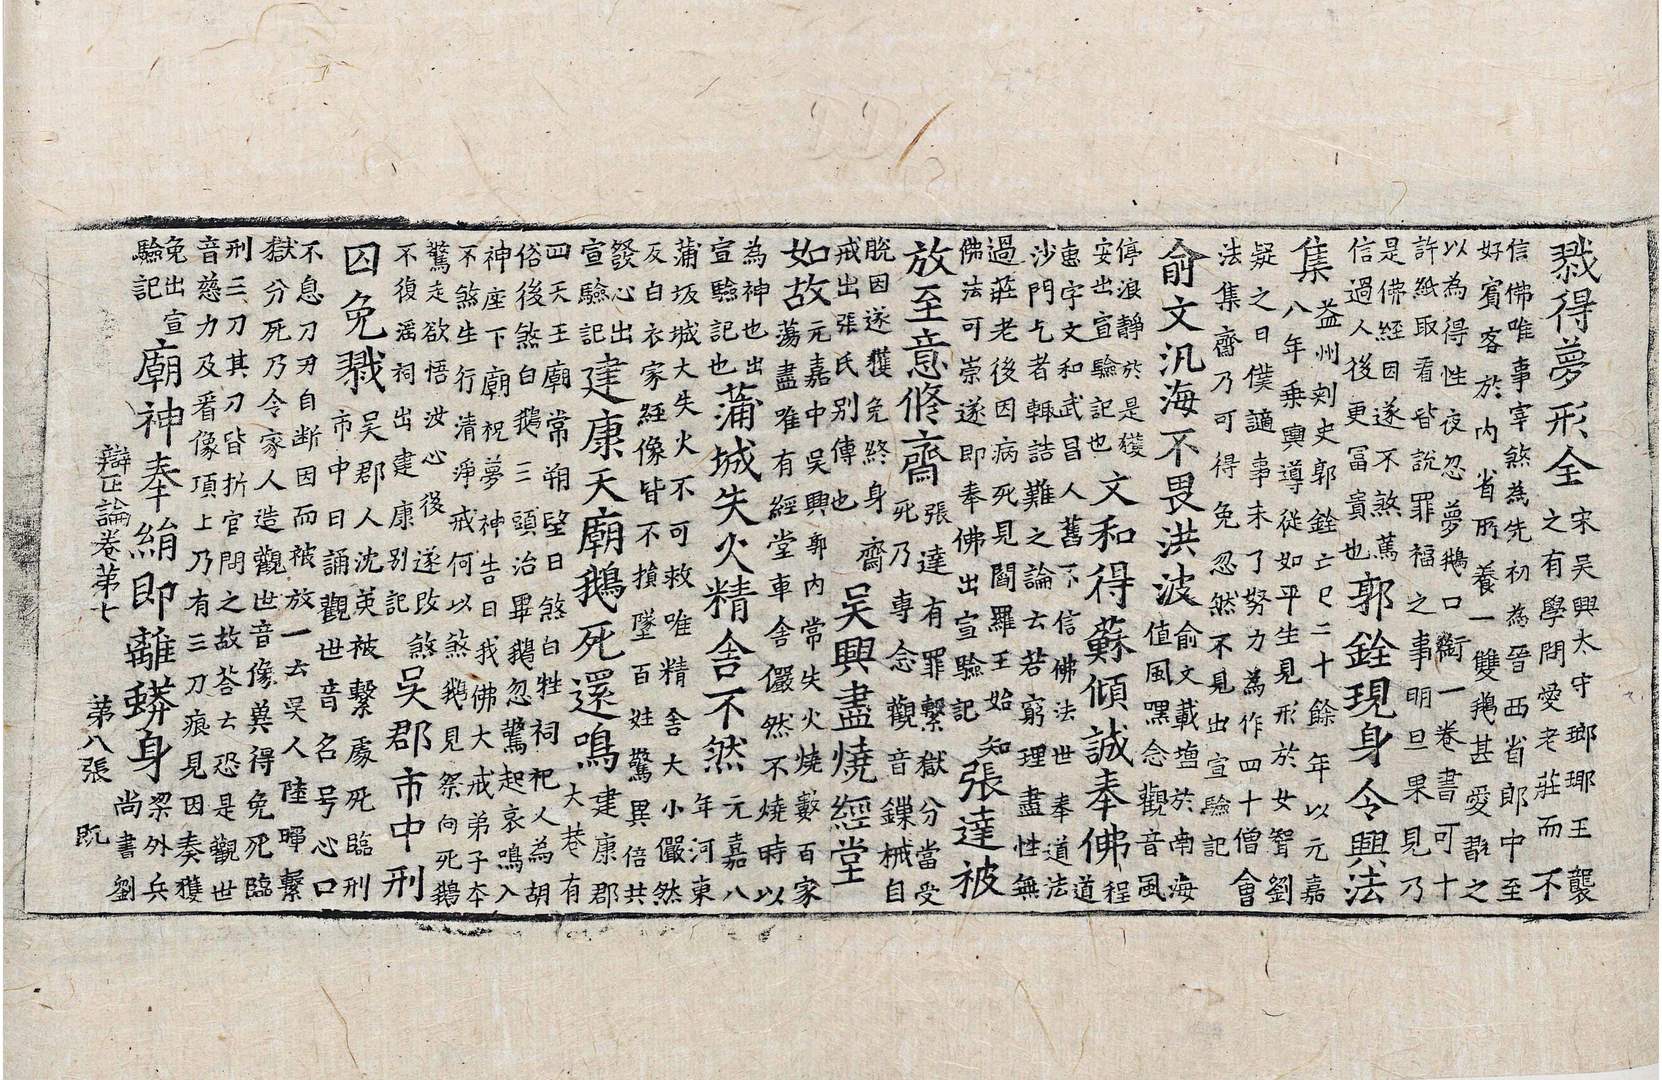 戮得夢形全
宋吳興太守瑯瑘王襲
之有學問愛老莊而不
信佛唯事宰煞為先初為晉西省郎中至
好賓客於內省所養一雙鵝甚愛翫之
以為得性夜忽夢鵝口銜一卷書可十
許紙取看皆說罪福之事明旦果見乃
是佛經因遂不煞篤
信過人後更冨貴也
郭銓現身令興法
集
益州刾史郭銓亡已二十餘年以元嘉
八年乗輿導從如平生見形於女聟劉
疑之曰僕謫事未了努力為作四十僧會
法集齋乃可得免忽然不見出宣驗記
俞文汎海不畏洪波
俞文載塩於南海
值風嘿念觀音風
停浪靜於是獲
安出宣驗記也
文和得蘇傾誠奉佛
程
道
惠字文和武昌人舊不信佛法世奉道法
沙門乞者輙詰難之論云若窮理盡性無
過莊老後因病死見閻羅王始知
佛法可崇遂即奉佛出宣驗記
張達被
放至意修齋
張達有罪繫獄分當受
死乃專念觀音鏁械自
脫因遂獲免終身齋
戒出張氏別傳也
吳興盡燒經堂
如故
元嘉中吳興郭內常失火燒數百家
蕩盡唯有經堂車舍儼然不燒時以
為神也出
宣驗記也
蒲城失火精舍不然
元嘉八
年河東
蒲坂城大失火不可救唯精舍大小儼然
反白衣家經像皆不損墜百姓驚異倍共
發心出
宣驗記
建康天廟鵝死還鳴
建康郡
大巷有
四天王廟常朔望日煞白牲祠祀人為胡
俗後煞白鵝三頭治畢鵝忽驚起哀鳴入
神座下廟祝夢神告曰我佛大戒弟子本
不煞生行清淨戒何以煞鵝見祭向死鵝
驚走欲悟汝心後遂改煞
不復滛祠出建康別記
吳郡市中刑
囚免戮
吳郡人沈英被繫處死臨刑
市中日誦觀世音名号心口
不息刀刃自断因而被放一云吳人陸暉繫
獄分死乃令家人造觀世音像兾得免死臨
刑三刀其刀皆折官問之故荅云恐是觀世
音慈力及㸔像項上乃有三刀痕見因奏獲
免出宣
驗記
廟神奉絹即離蟒身
梁外兵
尚書劉
辯正論卷第七 第八張 旣